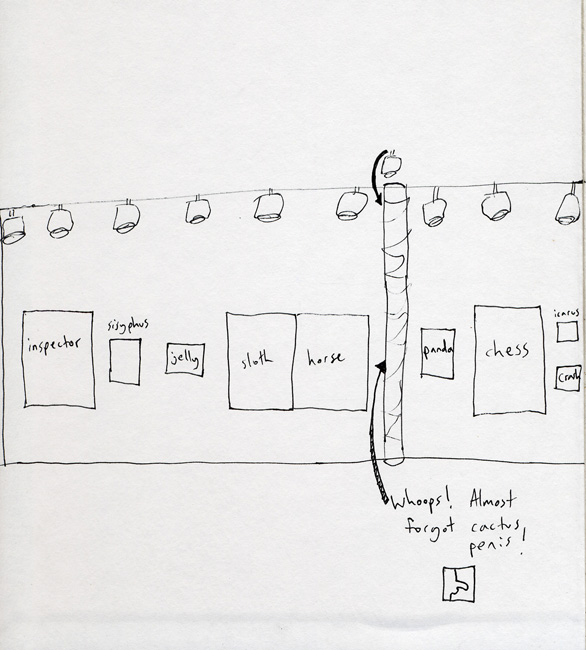 sisyphus
icarus
inspector
jelly
sloth
horse
panda
chess
crash
Whoops! Almost
forgot cactus
penis!